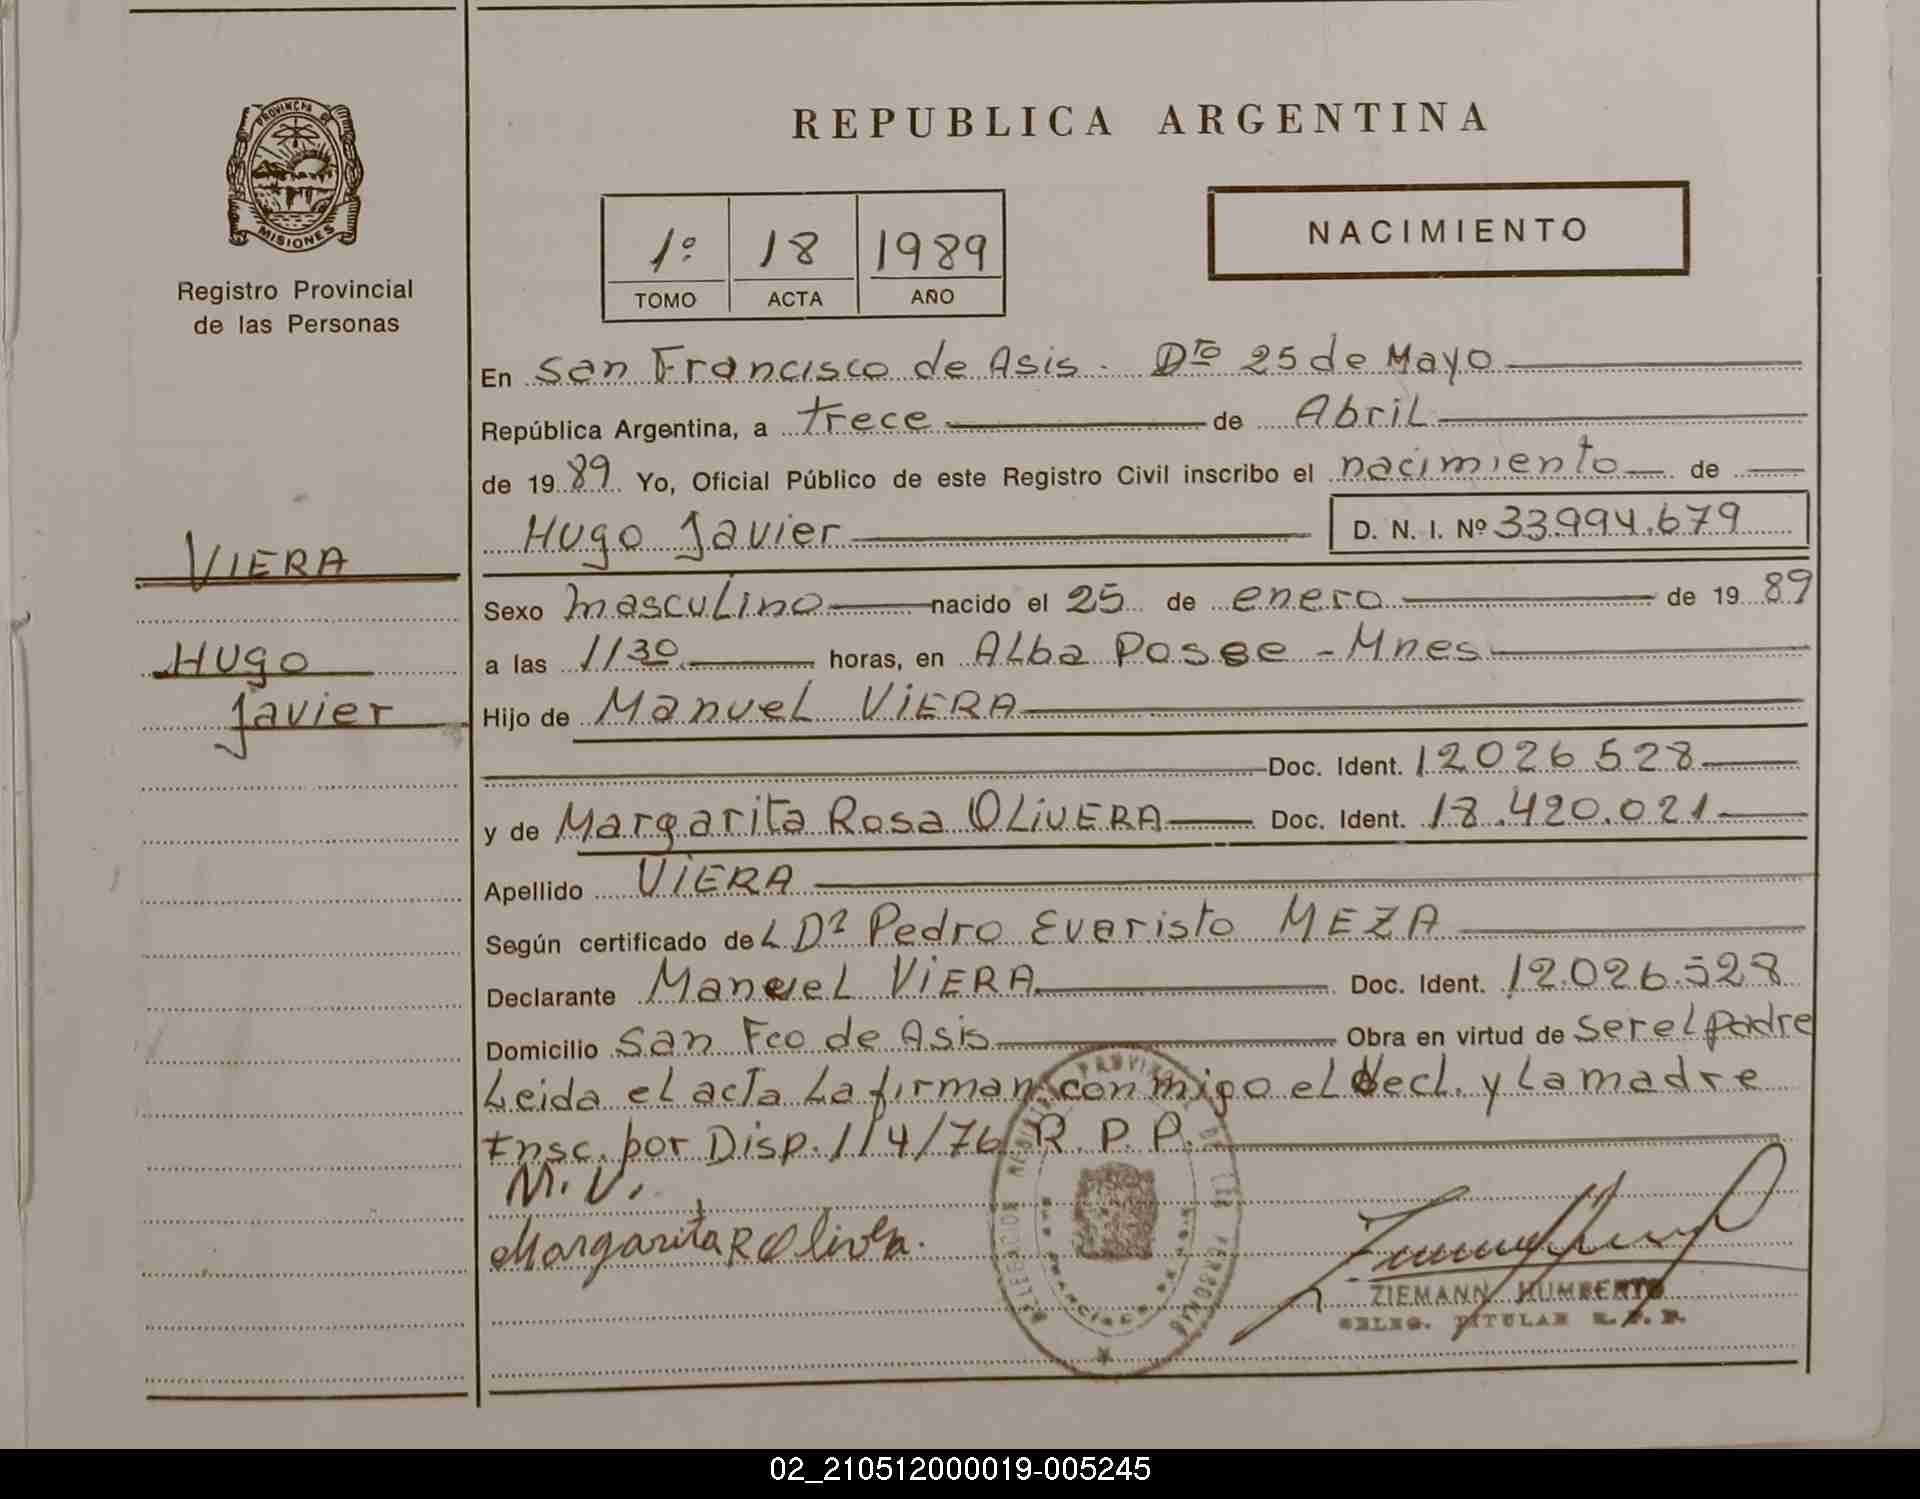 PROVINCIA DE
MISIONES
Registro Provincial
de las Personas
VIERA
Hugo
Javier
REPUBLICA ARGENTINA
1º 18 1989
TOMO ACTA AÑO
NACIMIENTO
En San Francisco de Asis. Dto 25 de Mayo
República Argentina, a trece de Abril
de 1989 Yo, Oficial Público de este Registro Civil inscribo el nacimiento de
Hugo Javier D. N. I. Nº 33.994.679
Sexo masculino nacido el 25 de enero de 1989
a las 1130 horas, en Alba Posse - Mnes
Hijo de Manuel VIERA
Doc. Ident. 12026528
y de Margarita Rosa OLIVERA Doc. Ident. 18.420.021
Apellido VIERA
Según certificado del Dr Pedro Evaristo MEZA
Declarante Manuel VIERA Doc. Ident. 12.026.528
Domicilio San Fco de Asis Obra en virtud de ser el padre
Leida el acta la firman conmigo el decl. y la madre
Insc. por Disp. 114/76 R. P. P.
M. V.
Margarita R Olivera.
ZIEMANN HUMBERTO
DELEG. TITULAR R. P. P.
02_210512000019-005245